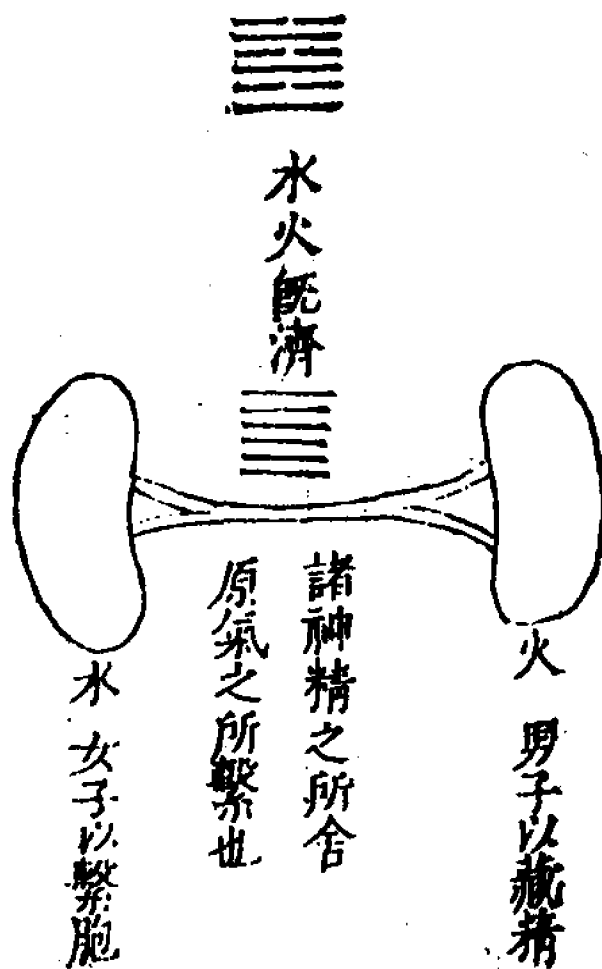 水火旣濟
火 男子以藏精
諸神精之所舍
原氣之所繫也
水 女子以繫胞